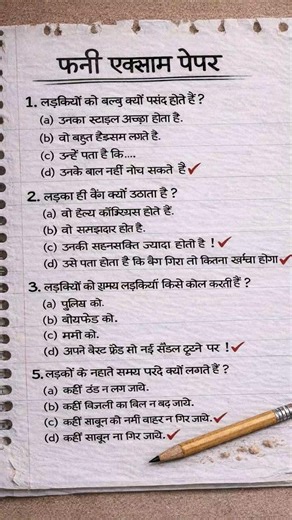 फनी एक्साम पेपर
1. लड़कियों को बल्बु क्यों पसंद होते हैं ?
(a) उनका स्टाइल अच्छा होता है.
(b) वो बहुत हैडसम लगते है.
(c) उन्हें पता है कि....
(d) उनके बाल नहीं नोच सकते हैं ✓
2. लड़का ही बैग क्यों उठाता है ?
(a) वो हैल्य कॉम्श्यिस होते हैं.
(b) वो समझदार होत है.
(c) उनकी सहनसक्ति ज्यादा होती है ! ✓
(d) उसे पता होता है कि बैग गिरा तो कितना खर्च्चा होगा ✓
3. लड़क्यिों को समय लड़कियां किसे कोल करती हैं ?
(a) पुलिस को.
(b) बोयफेड को.
(c) ममी को.
(d) अपने बेस्ट फ्रेड सो नई सैंडल टूटने पर ! ✓
5. लड़कों के नहाते समय परदे क्यों लगते हैं ?
(a) कहीं ठंड न लग जाये.
(b) कहीं बिजली का बिल न बद जाये.
(c) कहीं साबुन की नमी बाहर न गिर जाये. ✓
(d) कहीं साबुन ना गिर जाये. ✓